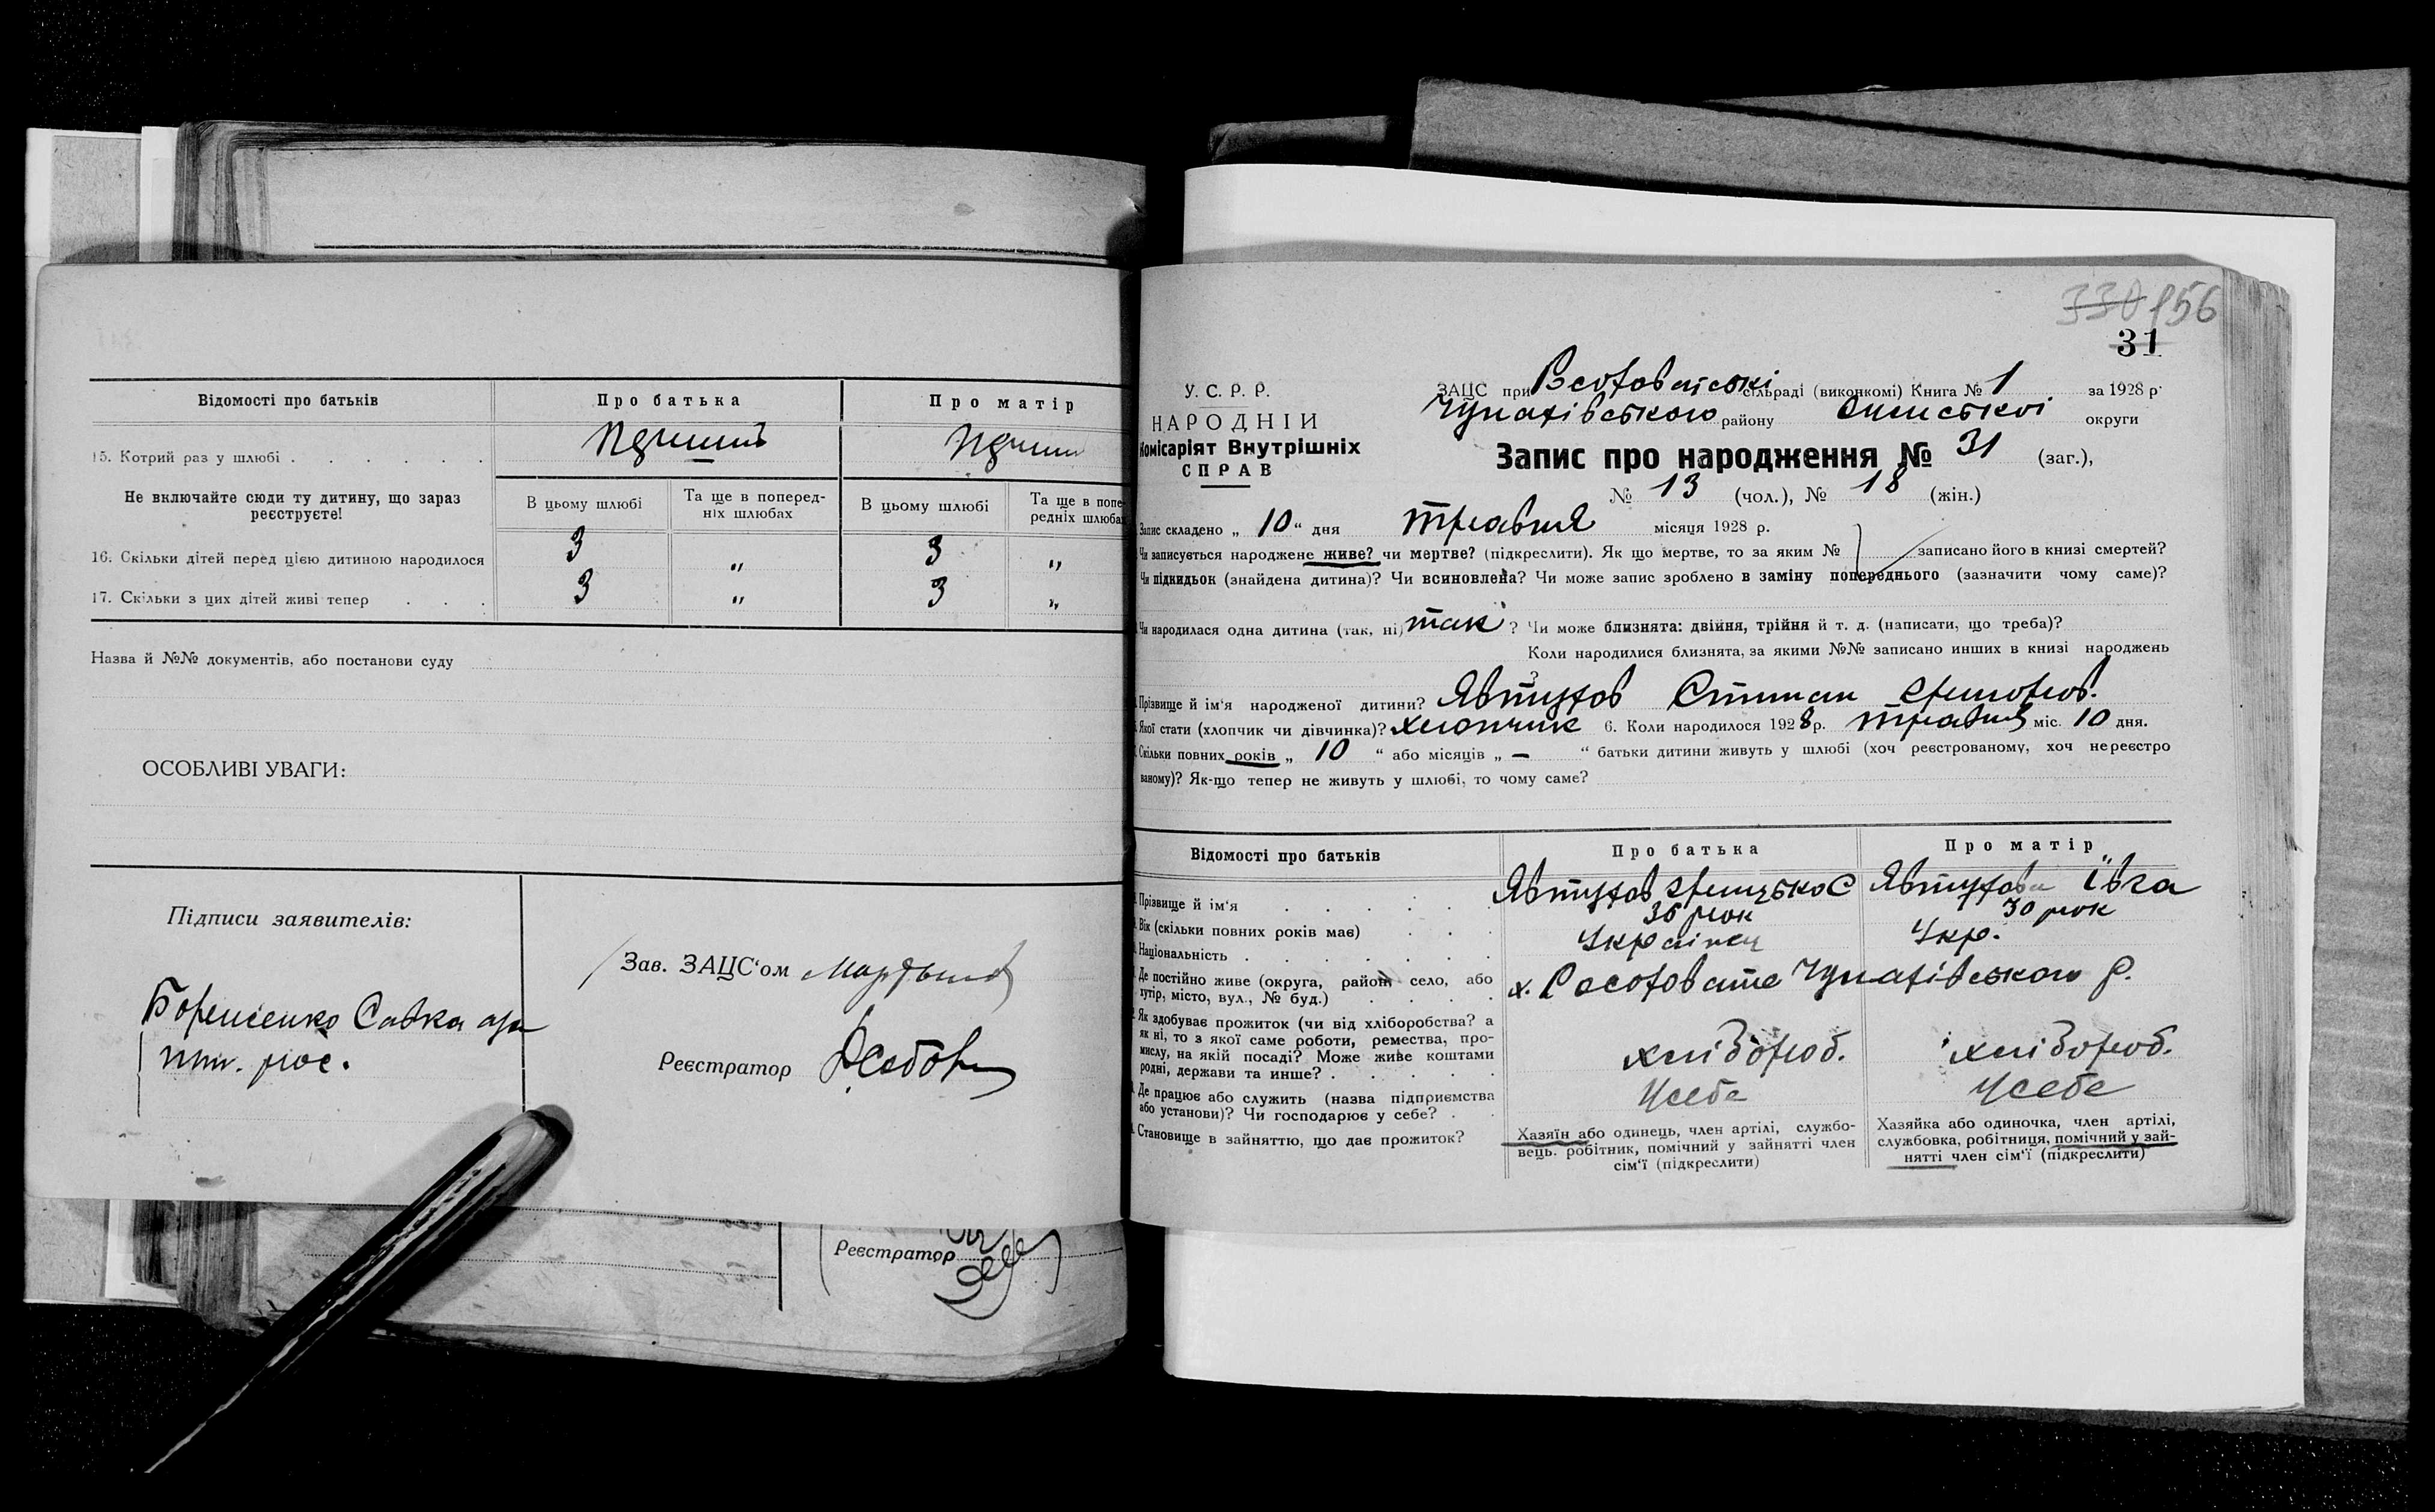 Відомості про батьків
Про батька
Про матір
15. Котрий раз у шлюбі
Не включайте сюди ту дитину, що зараз
реєструєте!
В цьому шлюбі
Та ще в поперед-
ніх шлюбах
В цьому шлюбі
Та ще в попе-
редніх шлюбах
16. Скільки дітей перед цією дитиною народилося 3 „ 3 „
17. Скільки з цих дітей живі тепер 3 „ 3 „
Назва й №№ документів, або постанови суду
ОСОБЛИВІ УВАГИ:
Підписи заявителів:
Савка
Зав. ЗАЦС‘ом
Реєстратор
Реєстратор
330 156
31
У. С. Р. Р.
НАРОДНІЙ
Комісаріят Внутрішніх
СПРАВ
ЗАЦС при сільраді (виконкомі) Книга № 1 за 1928 р.
району округи
Запис про народження № 31 (заг.),
№ 13 (чол.), № 18 (жін.)
Запис складено „ 10 “ дня травня місяця 1928 р.
Чи записується народжене живе? чи мертве? (підкреслити). Як що мертве, то за яким № записано його в книзі смертей?
Чи підкидьок (знайдена дитина)? Чи всиновлена? Чи може запис зроблено в заміну попереднього (зазначити чому саме)?
Чи народилася одна дитина (так, ні) так ? Чи може близнята: двійня, трійня й т. д. (написати, що треба)?
Коли народилися близнята, за якими №№ записано инших в книзі народжень
Прізвище й ім‘я народженої дитини? Явтухов
Якої стати (хлопчик чи дівчинка)? хлопчик 6. Коли народилося 1928 р. травня міс. 10 дня.
Скільки повних років „ 10 “ або місяців „ — “ батьки дитини живуть у шлюбі (хоч реєстрованому, хоч нереєстро
ваному)? Як-що тепер не живуть у шлюбі, то чому саме?
Відомості про батьків
Про батька
Про матір
Прізвище й ім‘я Явтухов Явтухова Івга
Вік (скільки повних років має) 36 рок 30 рок
Національність Українец Укр.
Де постійно живе (округа, район, село, або
хутір, місто, вул., № буд.)
х. Росоховате Чупахівського р.
Як здобуває прожиток (чи від хліборобства? а
як ні, то з якої саме роботи, ремества, про-
мислу, на якій посаді? Може живе коштами
родні, держави та инше?
хлібороб. хлібороб.
Де працює або служить (назва підприємства
або установи)? Чи господарює у себе?
Усебе Усебе
Становище в зайняттю, що дає прожиток?
Хазяїн або одинець, член артілі, службо-
вець. робітник, помічний у зайнятті член
сім‘ї (підкреслити)
Хазяйка або одиночка, член артілі,
службовка, робітниця, помічний у зай-
нятті член сім‘ї (підкреслити)